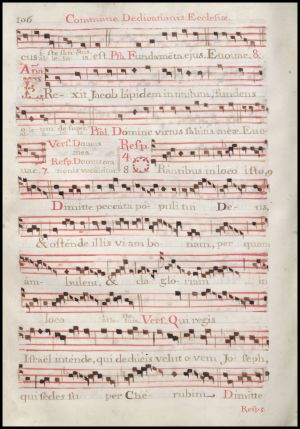 106 Commune Dedicationis Ecclesiæ.
cus est. Psal. Fundaméta ejus. Evovae. 8.
Añ.
Erexit Jacob lapidem in titulum, fundens
oleum desuper. Psal. Domine virtus salutis meæ. Evo
vae. 7. Vers. Domus mea. Resp. Domus ora tionis vocabitur. Resp. 4 8 Orantibus in loco isto,
Dimitte peccáta pópuli tui Deus,
& osténde illis viam bonam, per quam
ámbulent, & da glóriam in
loco isto. Vers. Qui regis
Israël inténde, qui dedúcis velut ovem Joseph,
qui sedes super Chérubim. Dimitte
Resp. 5.